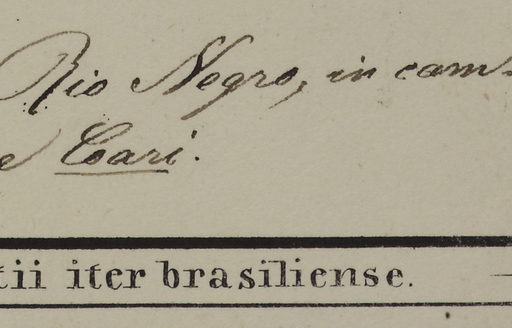 Rio Negro, in cam-
e Cari.
tii iter brasiliense.